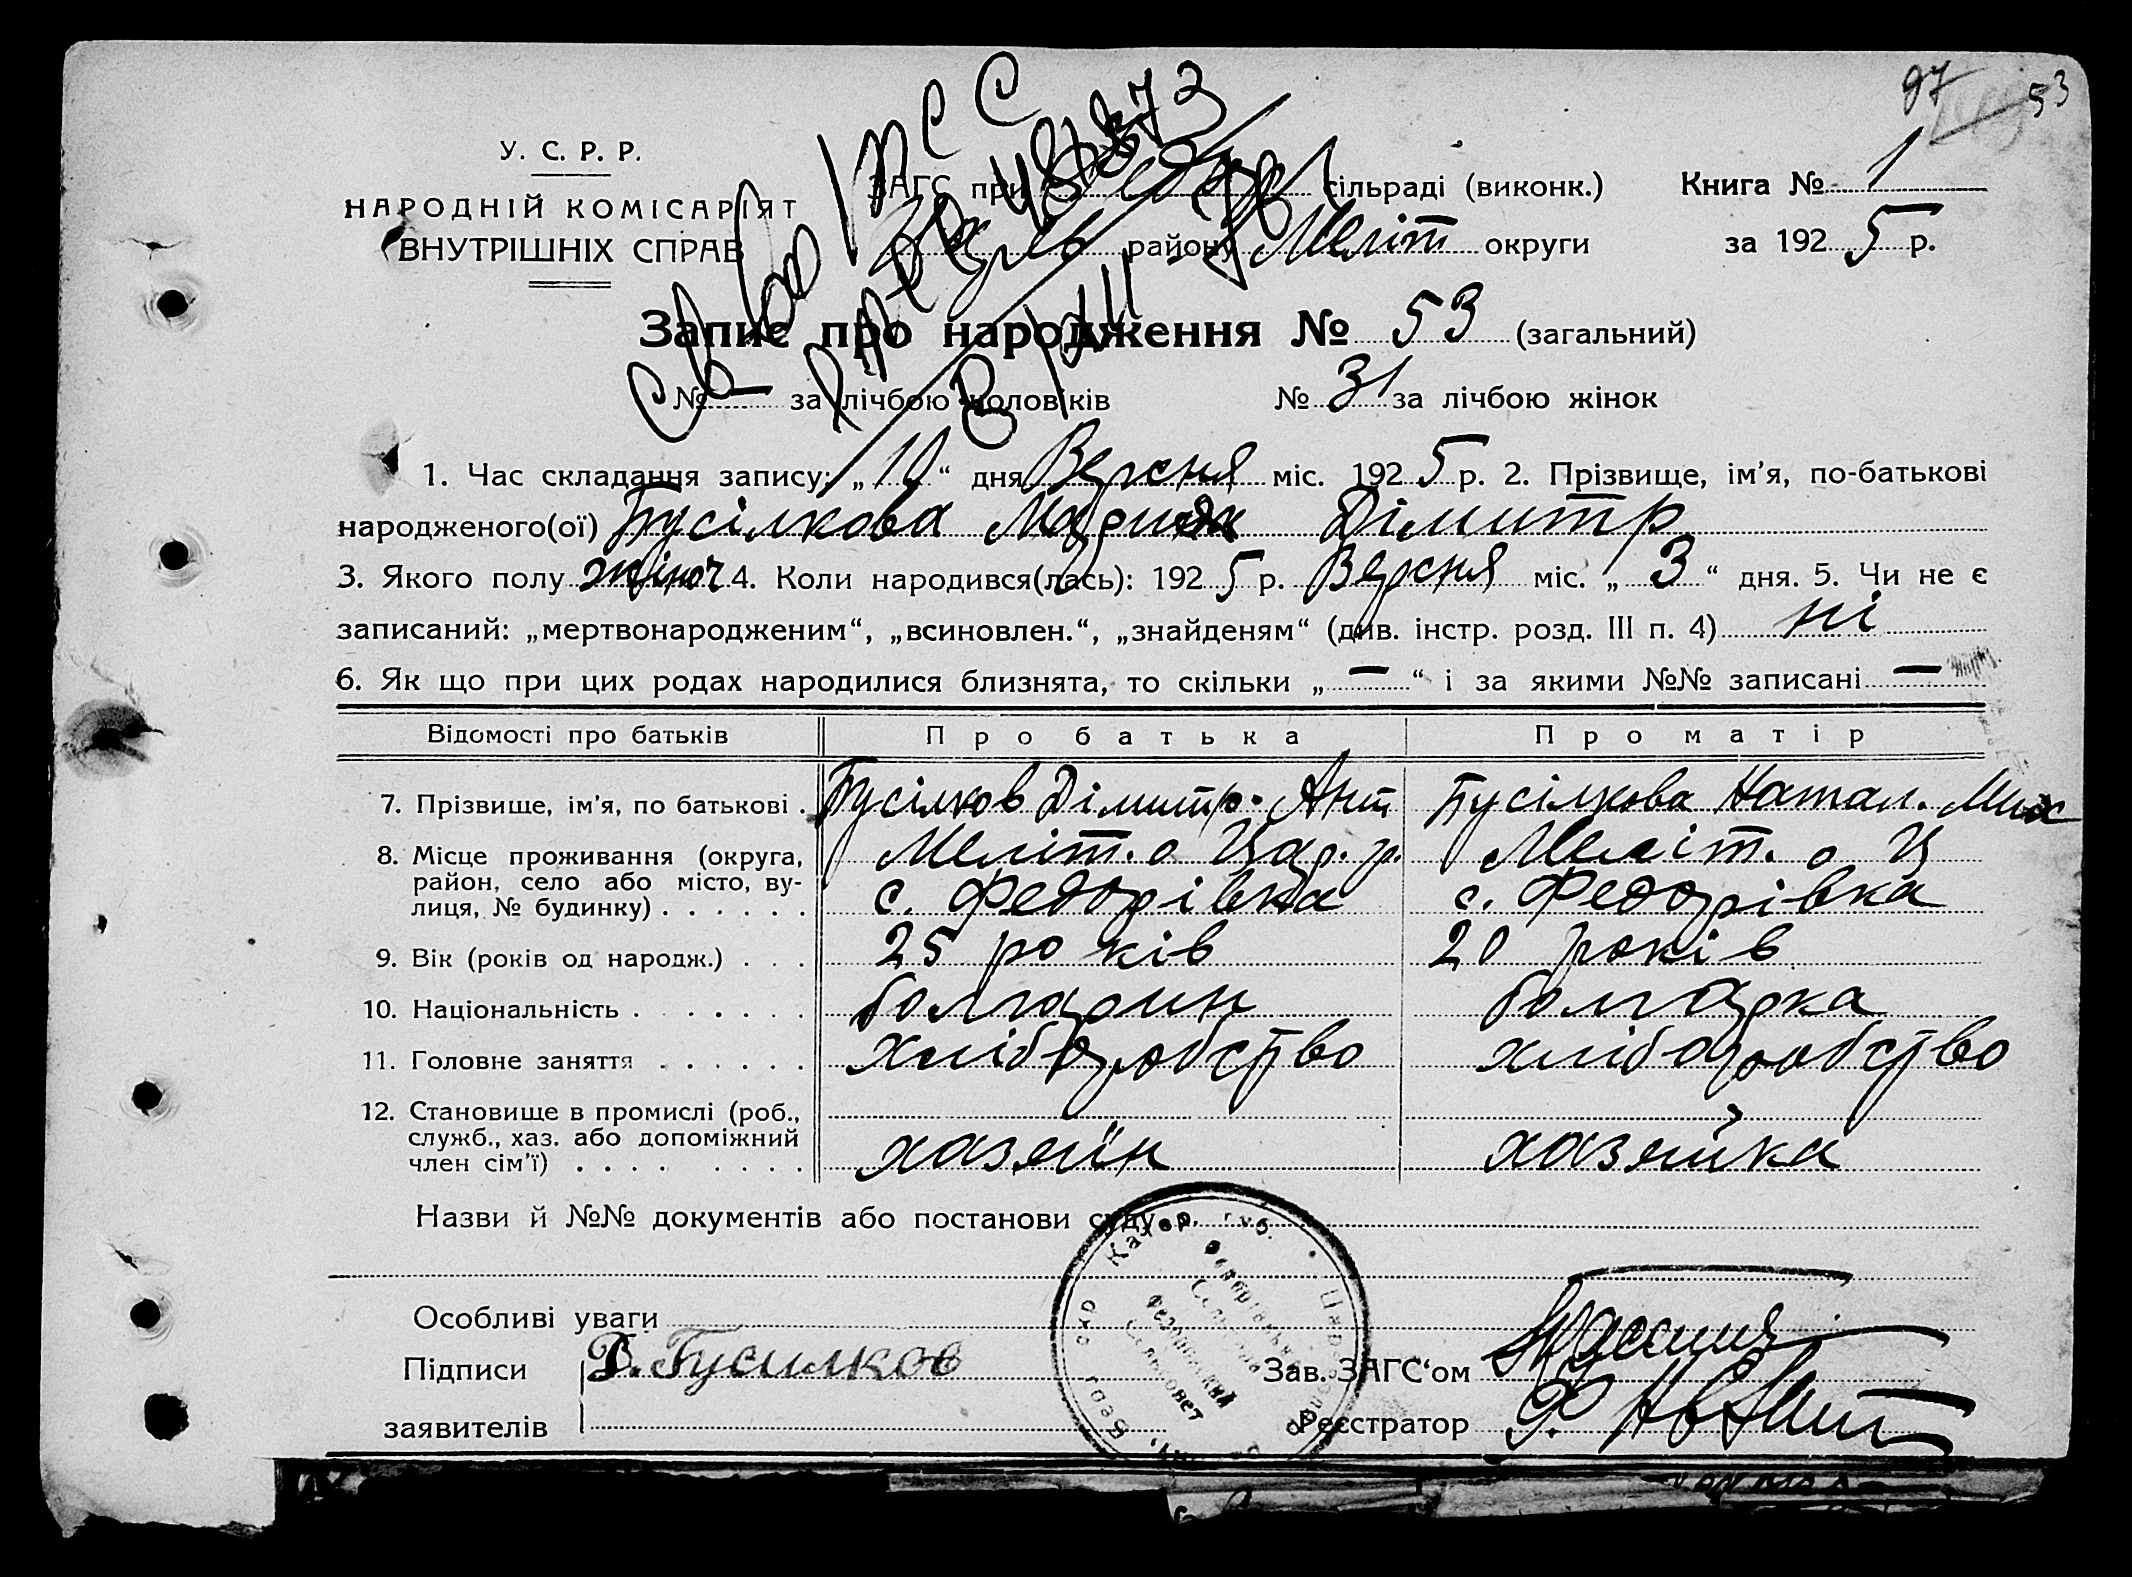 97 53
У. С. Р. Р.
НАРОДНІЙ КОМІСАРІЯТ
ВНУТРІШНІХ СПРАВ
ЗАГС при сільраді (виконк.) Книга № 1
району Меліт округи за 192 5 р.
Запис про народження № 53 (загальний)
№ за лічбою чоловіків № 31 за лічбою жінок
1. Час складання запису: „10“ дня Версня міс. 192 5 р. 2. Прізвище, ім'я, по-батькові
народженого(ої) Бусілкова Дімитр
3. Якого полу жіноч 4. Коли народився(лась): 192 5 р. Версня міс. „3“ дня. 5. Чи не є
записаний: „мертвонародженим“, „всиновлен.“, „знайденям“ (див. інстр. розд. III п. 4) ні
6. Як що при цих родах народилися близнята, то скільки „—“ і за якими №№ записані —
Відомості про батьків Про батька Про матір
7. Прізвище, ім'я, по батькові . Бусілков Дімитр. Ант Бусілкова Натал. Мих
8. Місце проживання (округа, Меліт. о Цар. р. Меліт. о Ц
район, село або місто, ву-
лиця, № будинку) . . . . . . с. Федорівка с. Федорівка
9. Вік (років од народж.) . . . 25 років 20 років
10. Національність . . . . . . . болгарин болгарка
11. Головне заняття . . . . . . хліборобство хліборобство
12. Становище в промислі (роб.,
служб., хаз. або допоміжний
член сім'ї) . . . . . . . . хазяїн хазяйка
Назви й №№ документів або постанови суду
Особливі уваги
Підписи Д. Бусилков Зав. ЗАГС‘ом
заявителів Реєстратор